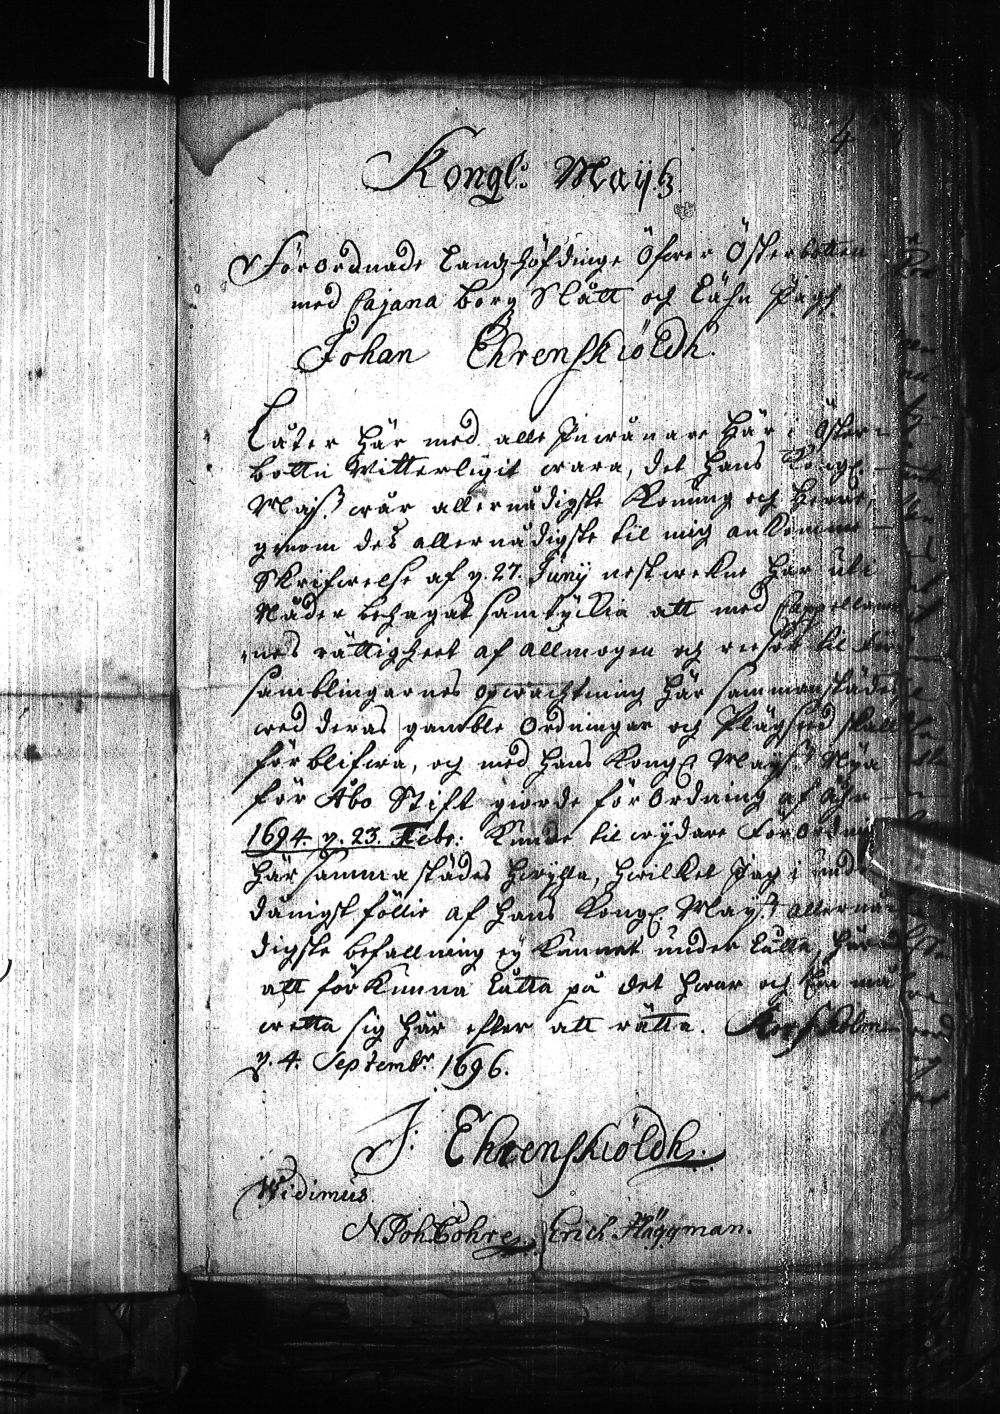 4
Kongl: Maÿtz
Förordnade Landzhöfdinge Öfwer Österbotten
med Cajana borg Slått och Lähn
Johan Ehrenskiöldh.
Låter här med alle Inwånare här i Öster-
botten Witterligit wara, det hans Kongl.
Maÿ:tt wår allernådigste Konung och Herre,
genom des allernådigste til mig ankomne
Skrifwelse af d. 27. Junÿ nestwekne har uti
Nåder behagat samtÿckia att med Cappellaner
nes rättigheet af allmogen och til För
samblingarnes opwachtning här sammanstädes
wed deras gamble Ordningar och Plägsed skall
förblifwa, och med hans Kongl. Maÿ:tz Nÿa
för Åbo Stift giorde förordning af åhr
1694. d. 23. Febr: Kunde til wÿdare Förordning
här sammastädes hwÿla, hwilket Jag i und
dånigst föllie af hans Kongl. Maÿ:tz allernå-
digste befallning eÿ kunnat under låtta, här
att förkunna låtta på det hwar och En må
wetta sig här efter att rätta. Korssholm
d. 4. Septembr 1696.
J: Ehrenskiöldh.
Widimus
Erich Häggman.